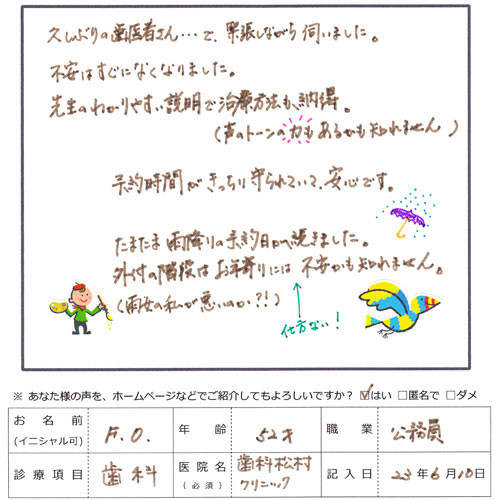 久しぶりの歯医者さん…で、緊張しながら伺いました。
不安はすぐになくなりました。
先生のわかりやすい説明で治療方法も、納得。
（声のトーンの力もあるかも知れません）
予約時間がきっちり守られていて、安心です。
たまたま雨降りの予約日が、続きました。
外付の階段はお年寄りには不安かも知れません。
（雨女の私が悪いのか？！）
仕方ない！
※ あなた様の声を、ホームページなどでご紹介してもよろしいですか？ ☑はい □匿名で □ダメ
お名前 (イニシャル可) F.O. 年齢 52才 職業 公務員
診療項目 歯科 医院名 (必須) 歯科松村クリニック 記入日 23年6月10日